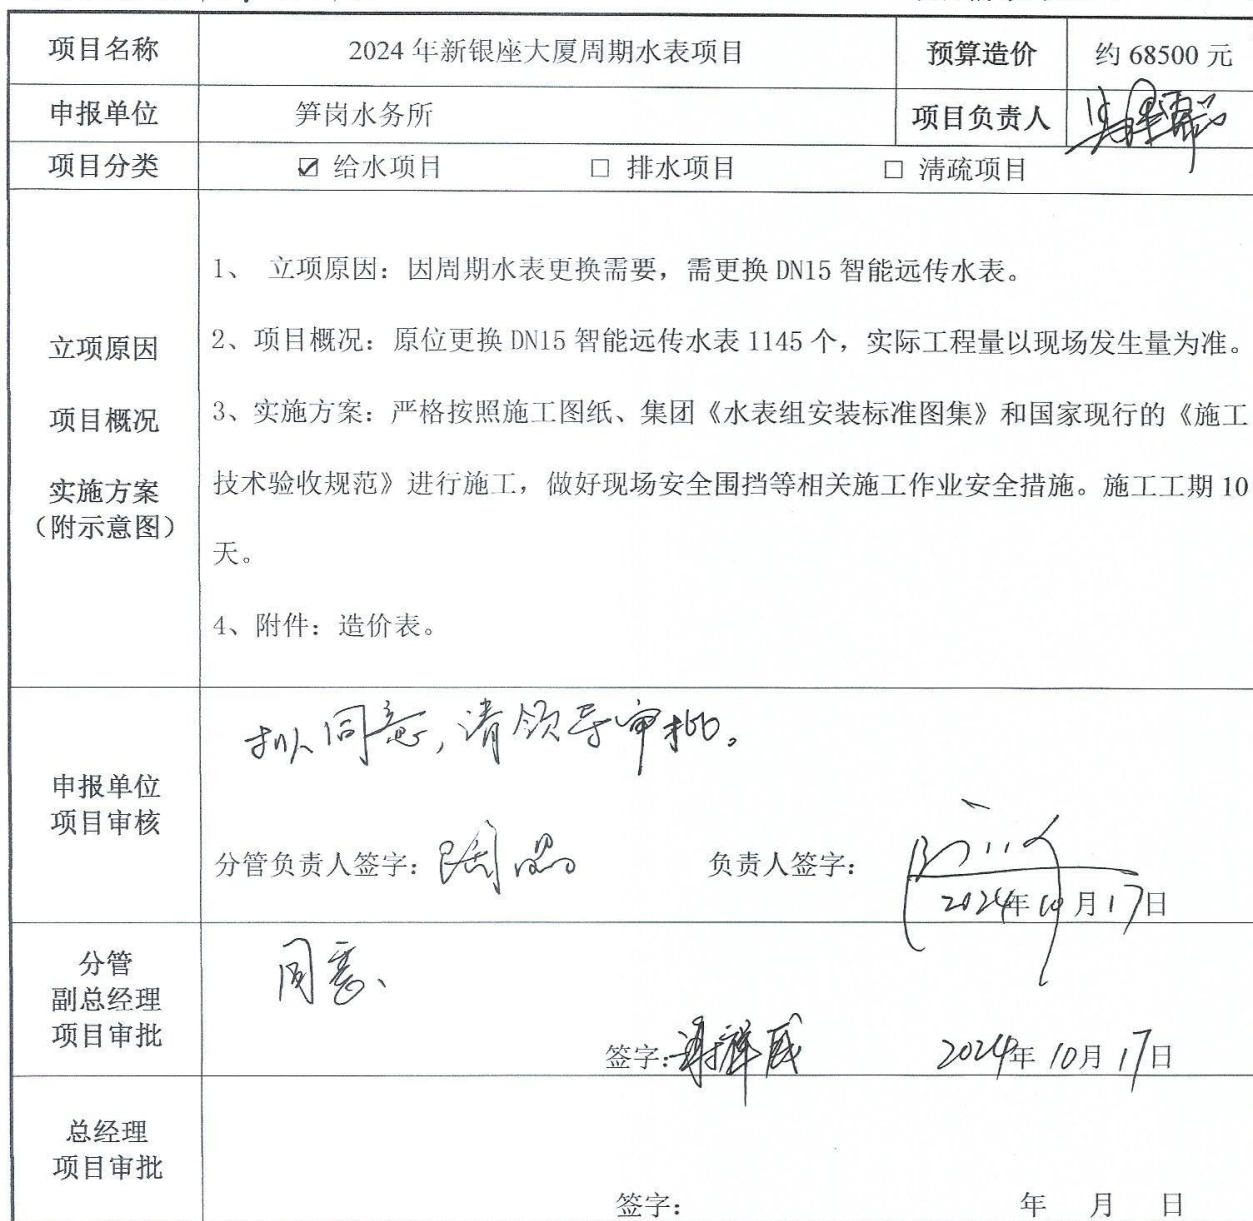 项目名称 2024年新银座大厦周期水表项目 预算造价 约 68500 元
申报单位 笋岗水务所 项目负责人
项目分类 ☑ 给水项目 □ 排水项目 □ 清疏项目
1、 立项原因：因周期水表更换需要，需更换 DN15 智能远传水表。
2、项目概况：原位更换 DN15 智能远传水表 1145 个，实际工程量以现场发生量为准。
立项原因
项目概况
实施方案
（附示意图）
3、实施方案：严格按照施工图纸、集团《水表组安装标准图集》和国家现行的《施工
技术验收规范》进行施工，做好现场安全围挡等相关施工作业安全措施。施工工期 10
天。
4、附件：造价表。
申报单位
项目审核
拟同意，请领导审批。
分管负责人签字： 负责人签字：
2024年10月17日
分管
副总经理
项目审批
同意、
签字： 2024年10月17日
总经理
项目审批
签字： 年 月 日